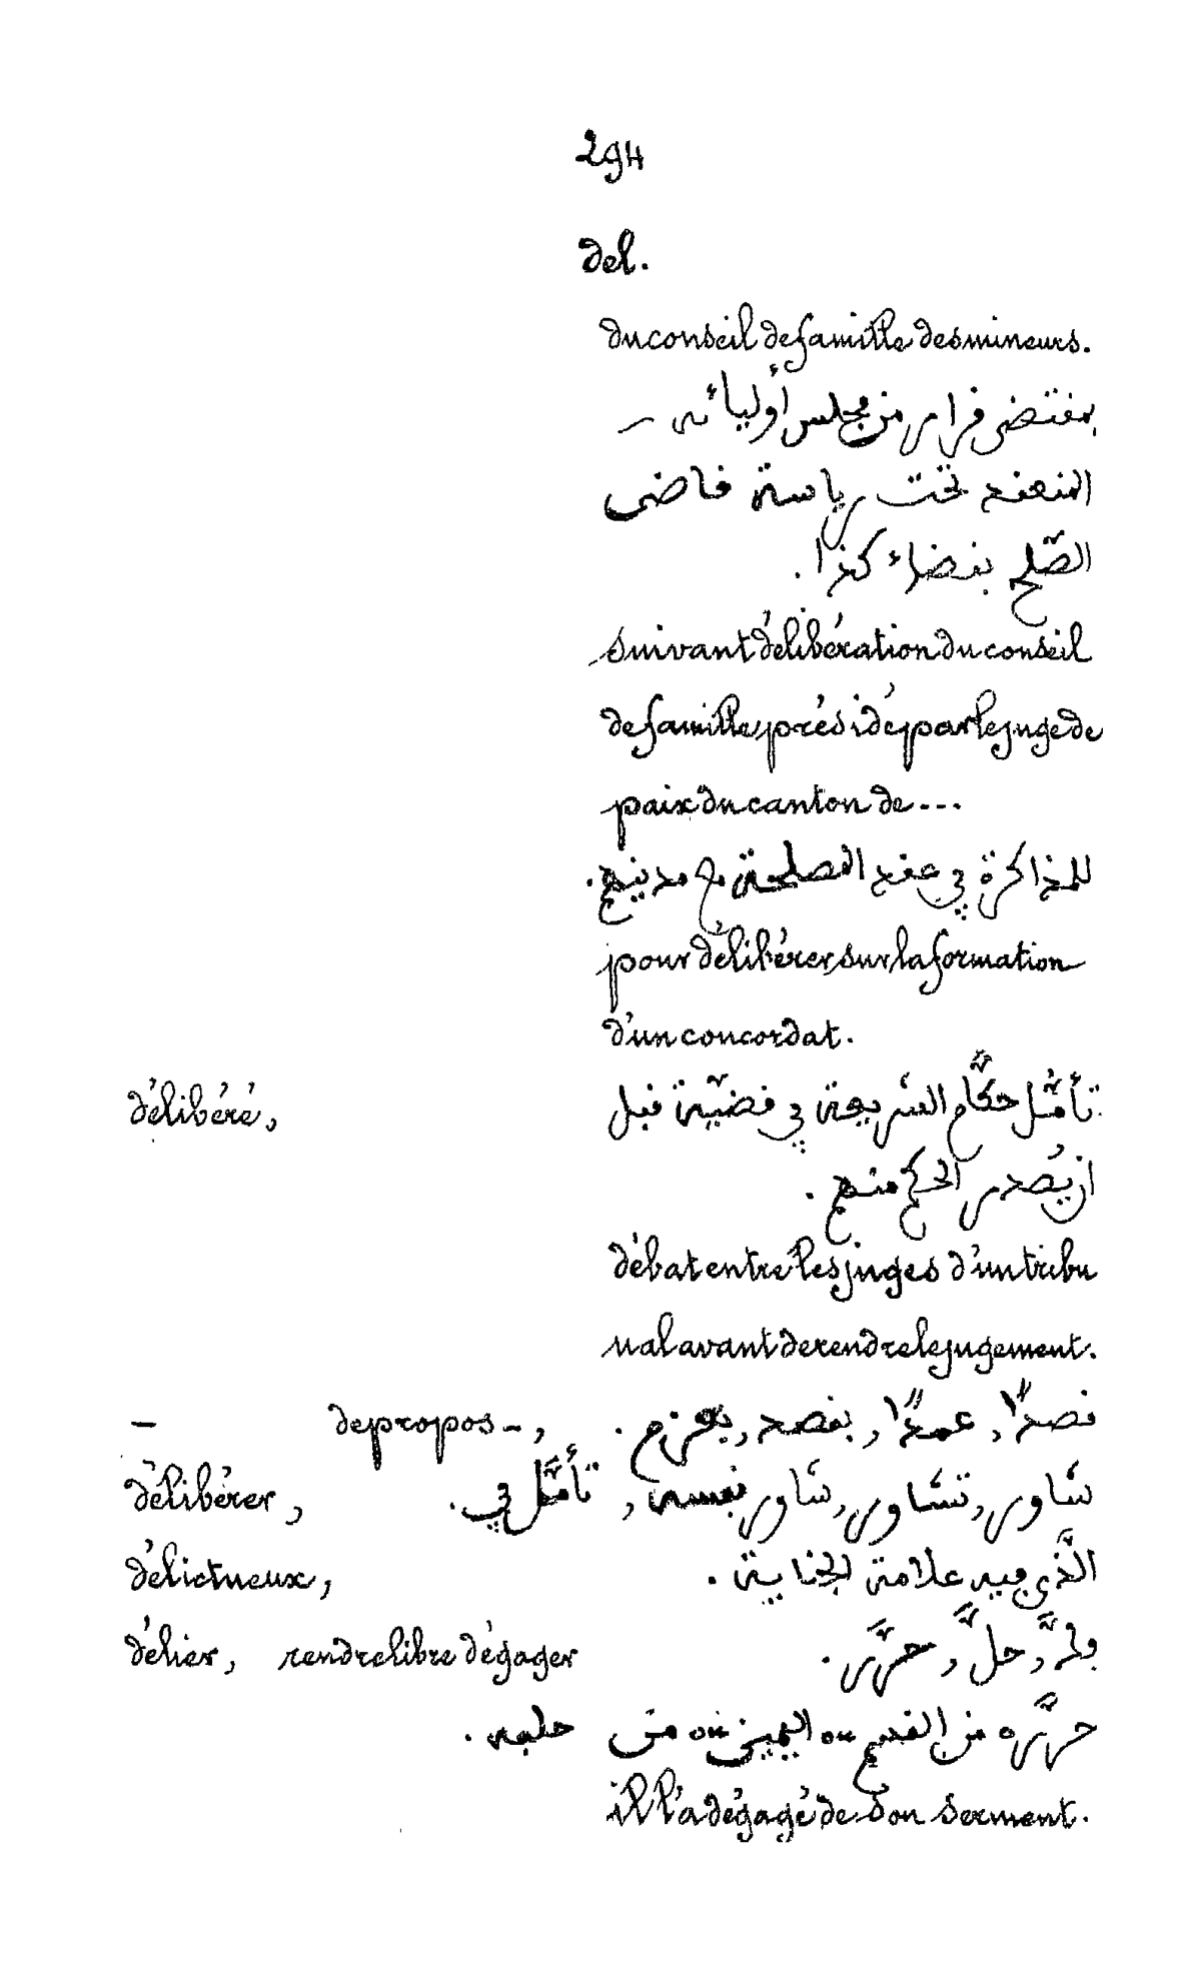 294
del.
du conseil de famille des mineurs.
بمقتضى قرار من مجلس أوليائه
المنعقد تحت رياسة قاضى
الصّلح بقضاء كذا.
suivant délibération du conseil
de famille, présidé par le juge de
paix du canton de ---
للمذاكرة في عقد المصلحة مع مدينهم.
pour délibérer sur la formation
d'un concordat.
délibéré, تأمّل حكّام الشريعة في قضيّة قبل
ان يُصدر الحكم منهم.
débat entre les juges d'un tribu
nal avant de rendre le jugement.
— de propos –, قصدًا, عمدًا, بقصد, بعزم.
délibérer, شاور, تشاور, شاور نفسه, تأمّل في.
délictueux, الّذي فيه علامة الجناية.
délier, rendre libre dégager حلّ, حرّر.
حرّره من القسم ou اليمين ou من حلفه.
il l'a dégagé de son serment.